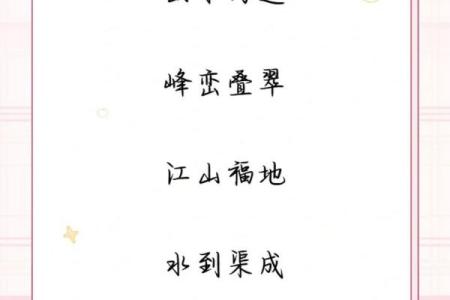 峰峦叠翠
江山福地
水到渠成